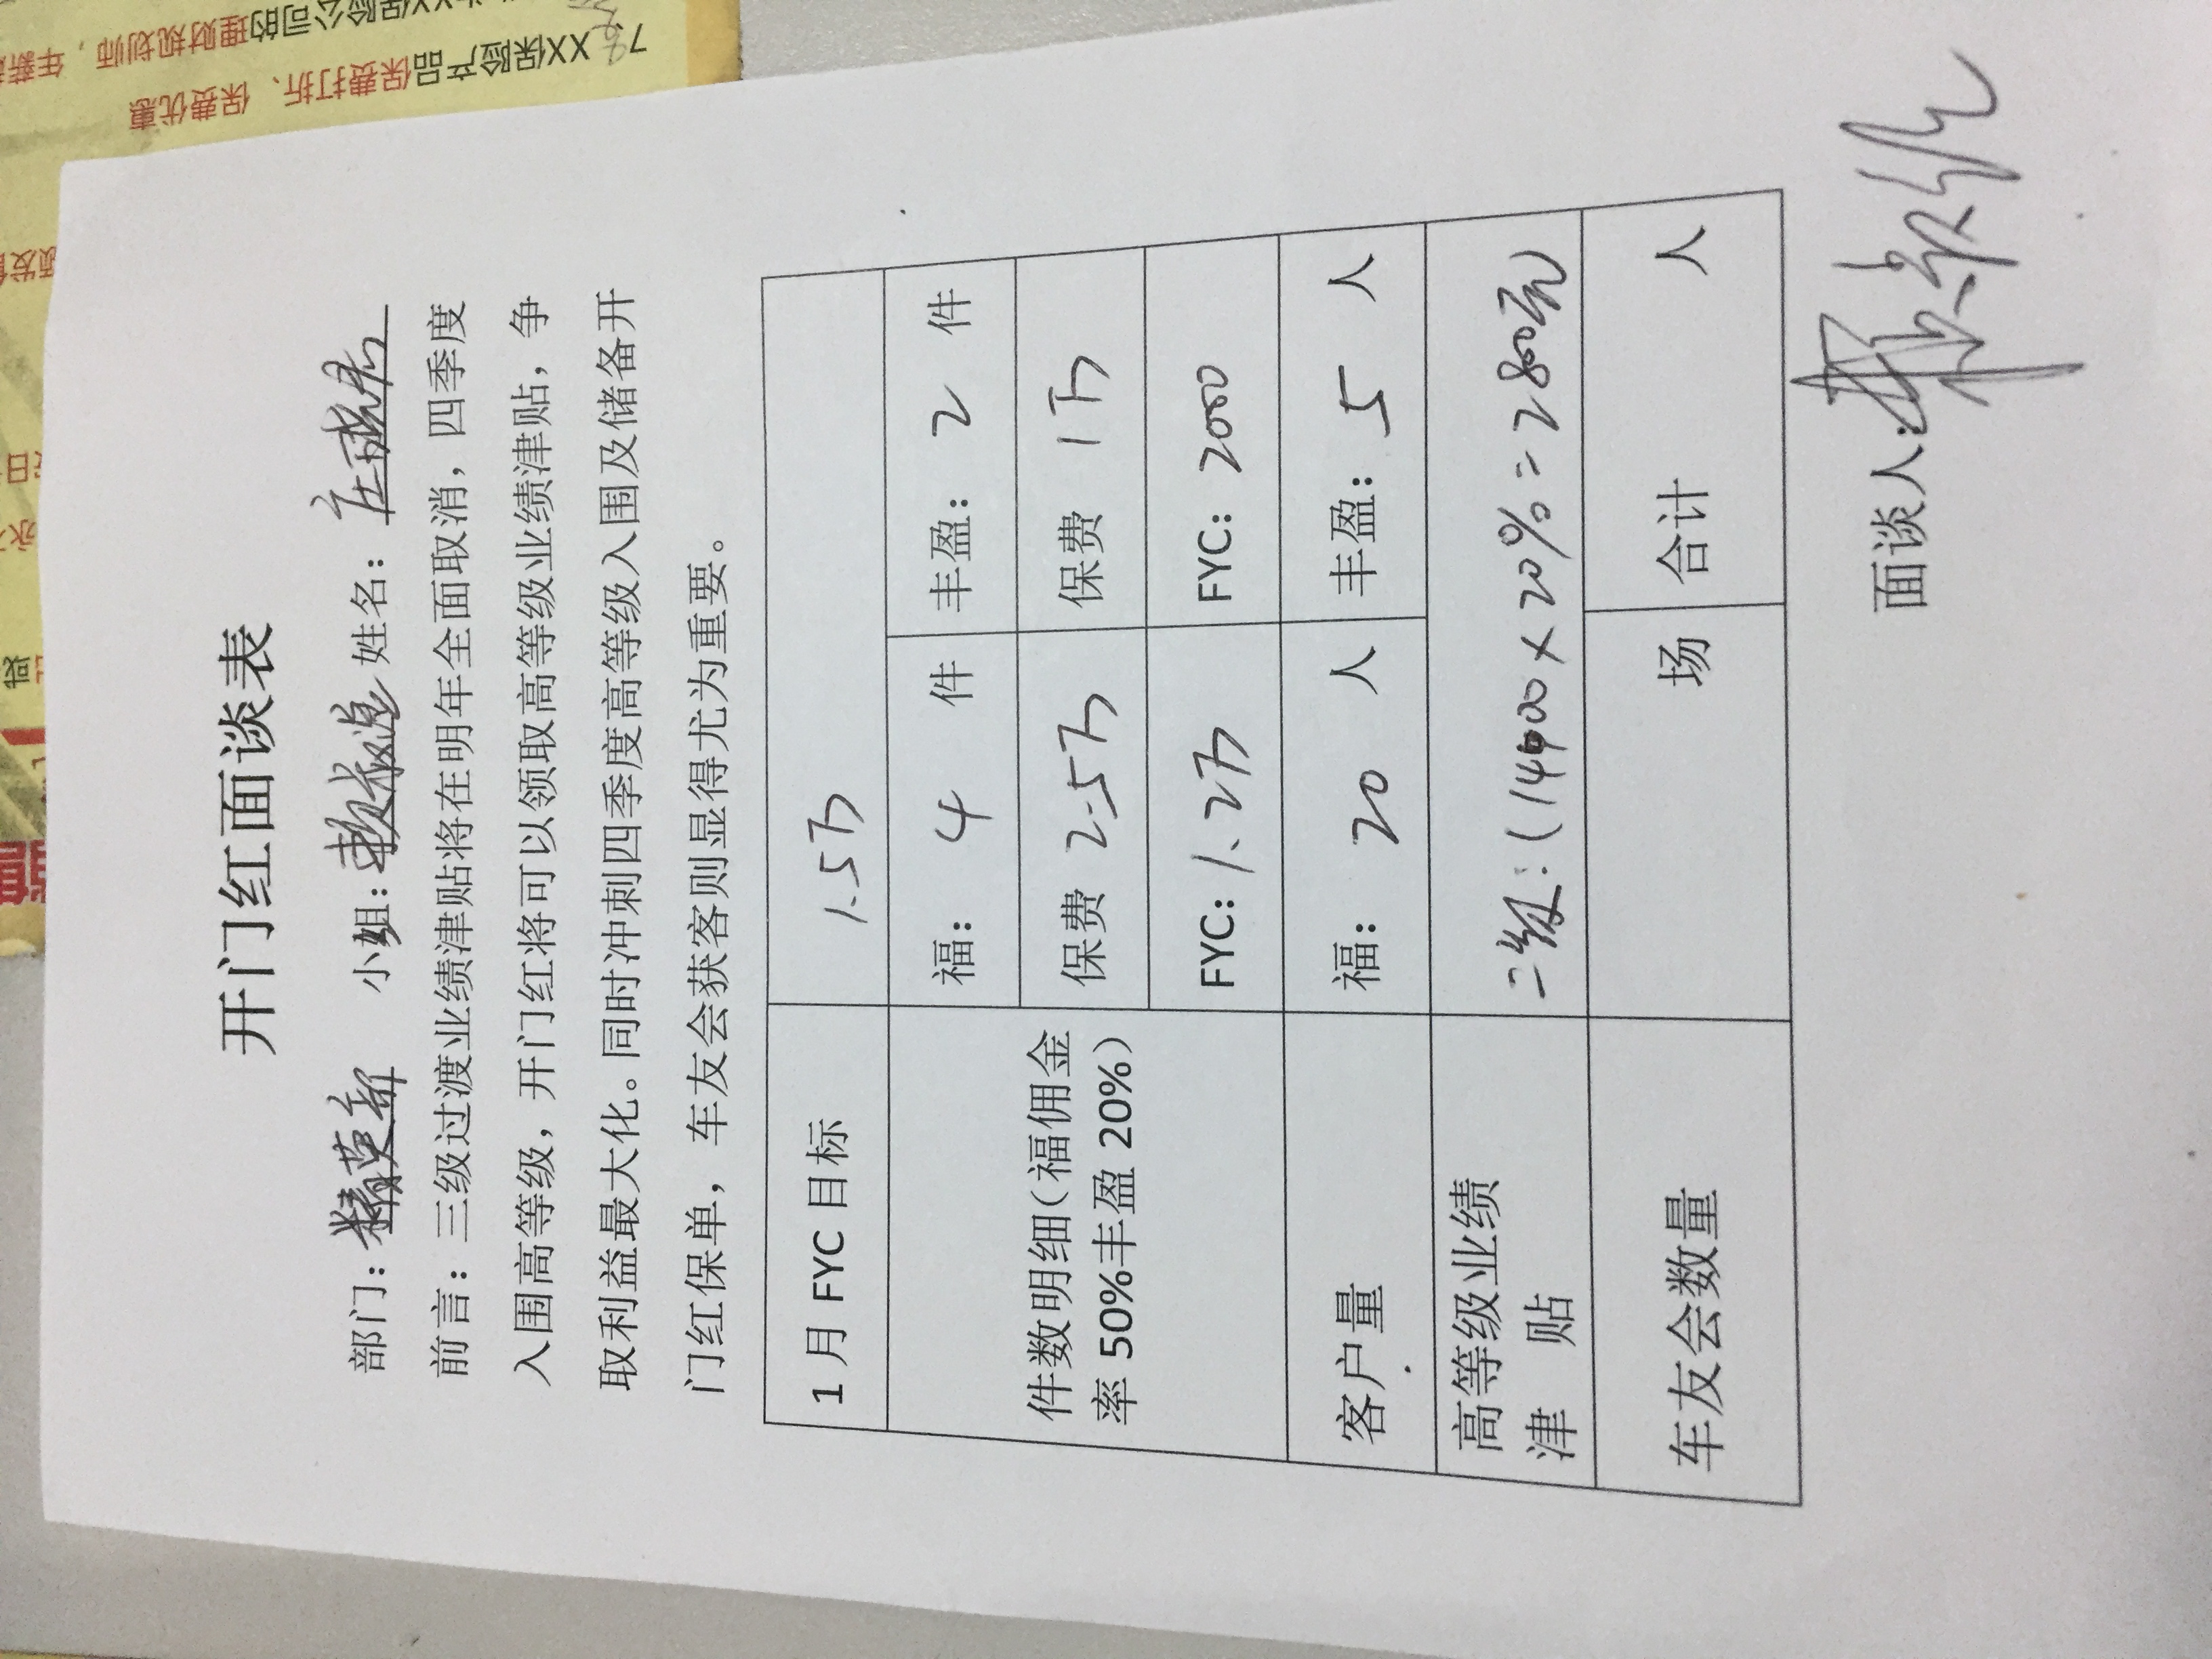 开门红面谈表
部门：精英新 小姐： 姓名：庄
前言：三级过渡业绩津贴将在明年全面取消，四季度
入围高等级，开门红将可以领取高等级业绩津贴，争
取利益最大化。同时冲刺四季度高等级入围及储备开
门红保单，车友会获客则显得尤为重要。
1月FYC目标 1.5万
件数明细（福佣金
率50%丰盈20%）
福： 4 件 丰盈： 2 件
保费 2.5万 保费 1万
FYC： 1.2万 FYC： 2000
客户量 福： 20 人 丰盈： 5 人
高等级业绩
津 贴
二级：（14400×20%=2800元）
车友会数量 场 合计 人
面谈人：
7 XX保险产品保费打折、保费优惠
XX保险公司的理财规划师，年薪